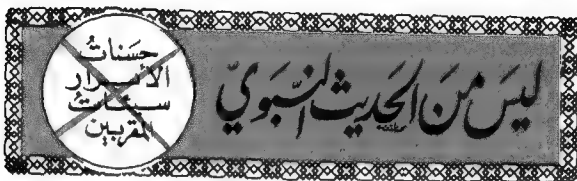 ليسَ منَ الحَديث النبَويّ
حسَناتُ
الأبرار
سيئاتُ
المقربين